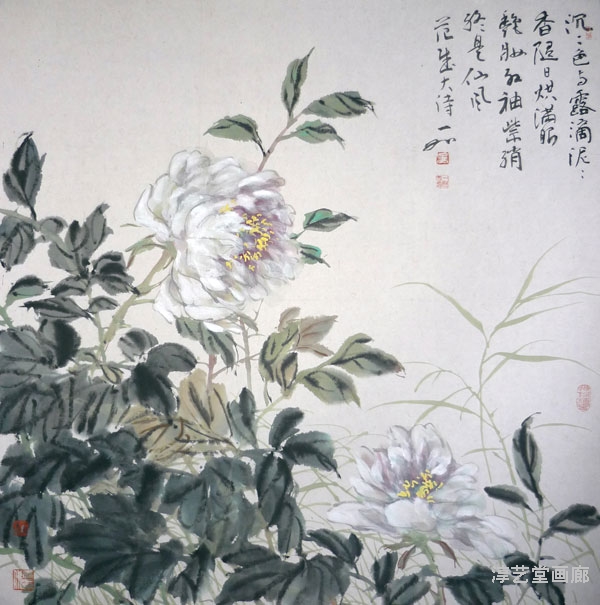 沉〻色与露滴泥〻
香随日烘满眼
艳妆红袖紫绡
终是仙风
范成大诗 一
淳艺堂画廊